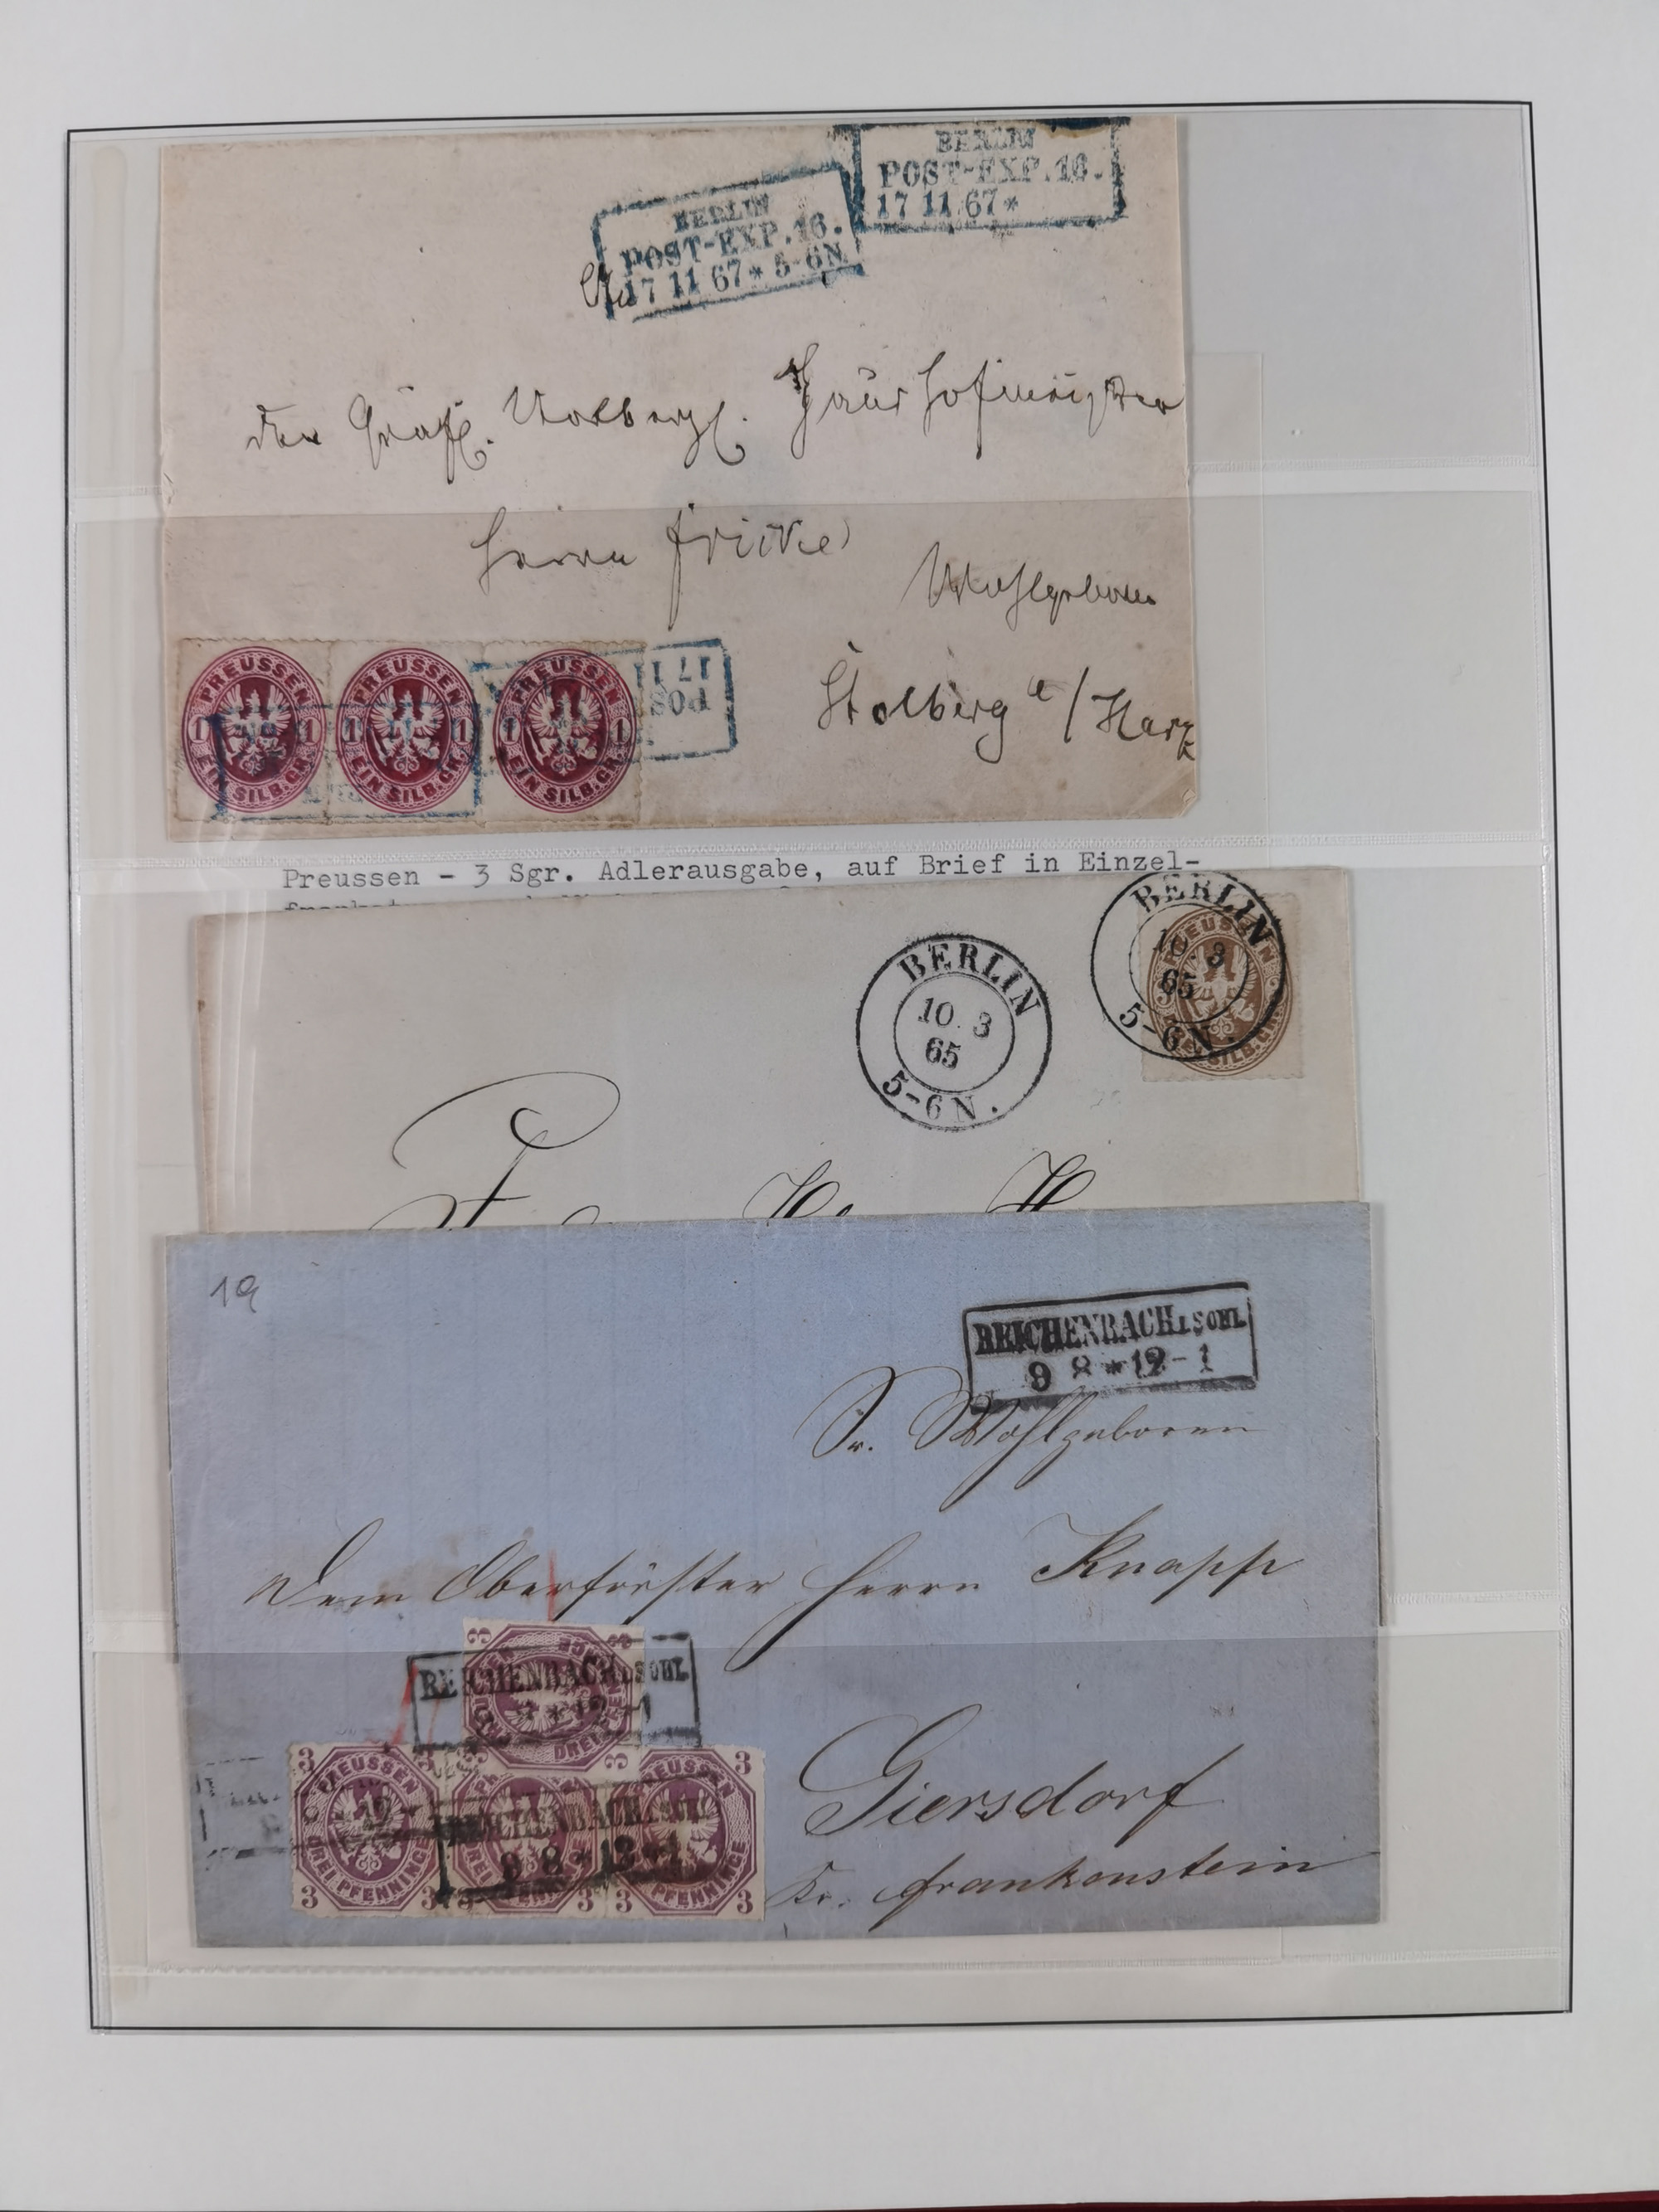 BERLIN
POST-EXP.16.
17 11 67*
BERLIN
POST-EXP.16.
17 11 67* 5-6N
An
den Gräfl. Stolbergl. Haushofmeister
Herrn Fricke
Wohlgeboren
Stolberg a/Harz
PREUSSEN
1 1
EIN SILB.GR.
PREUSSEN
1 1
EIN SILB.GR.
PREUSSEN
1 1
EIN SILB.GR.
17 11
POS
Preussen - 3 Sgr. Adlerausgabe, auf Brief in Einzel-
BERLIN
10 3
65
5-6N.
BERLIN
10 3
65
5-6N.
PREUSSEN
3
DREI SILB.GR.
19
REICHENBACH i.SCHL.
9 8 * 12-1
Sr. Wohlgeboren
Dem Oberförster Herrn Knapp
Giersdorf
Kr. Frankenstein
REICHENBACH i.SCHL.
9 8 * 12-1
3 3
DREI PFENNINGE
3 3
3 3
PREUSSEN
DREI PFENNINGE
3 3
REICHENBACH i.SCHL.
9 8 * 12-1
3
PREUSSEN
PFENNINGE
3 3